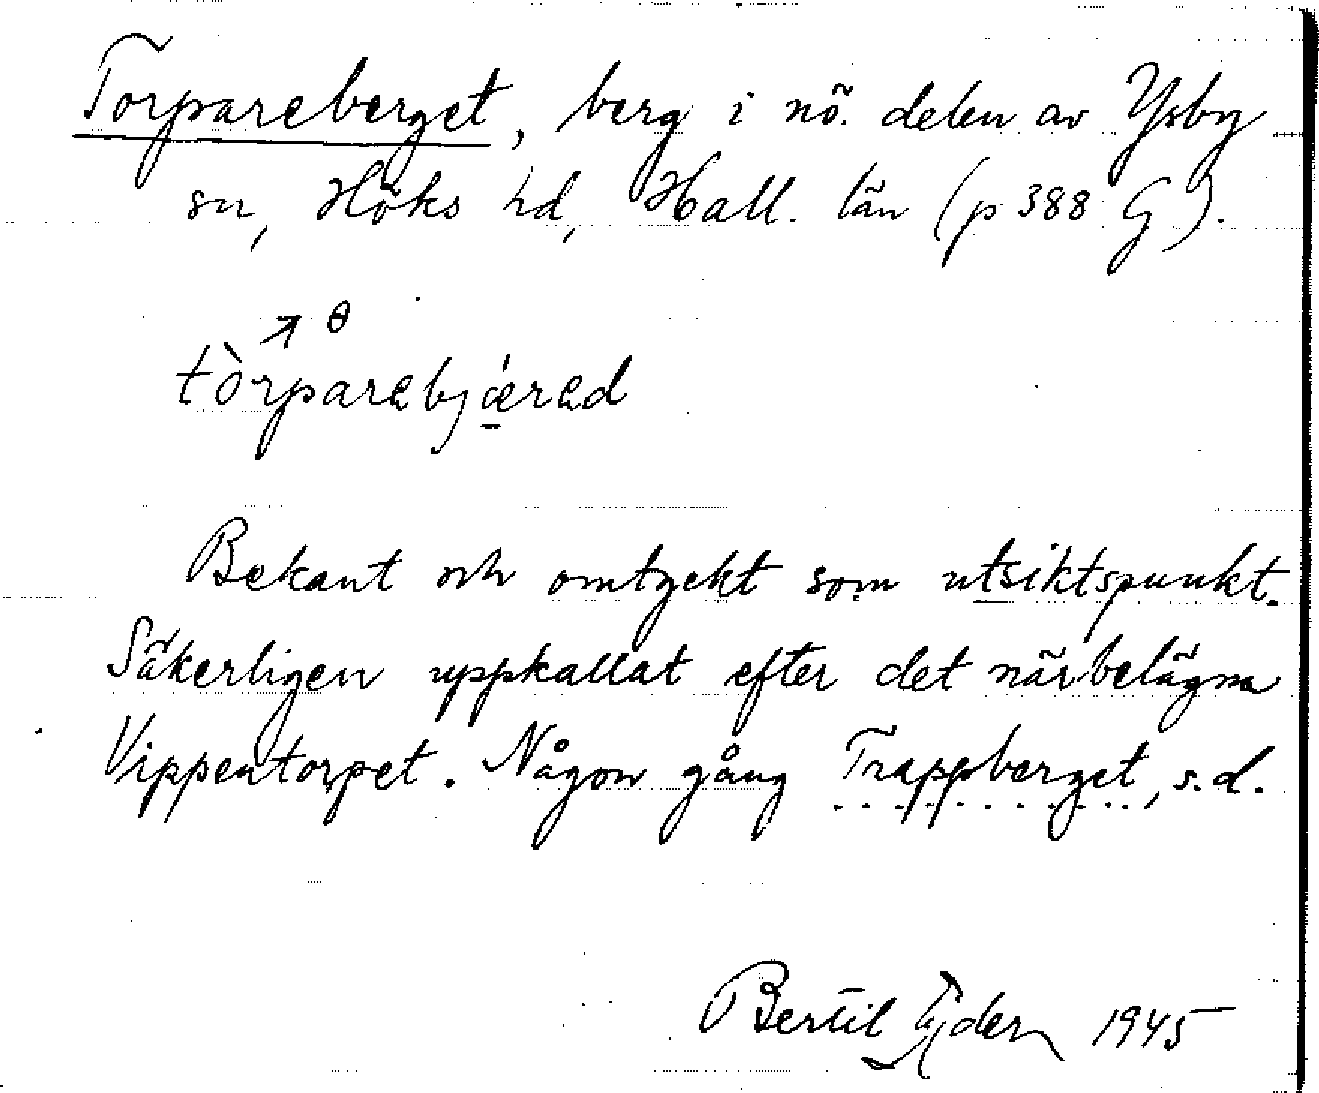 Torpareberget, berg i nö. delen av Ysby
sn, Höks hd, Hall. län (p 388 G).
↗ θ
tòrparəbjǽrəd
Bekant och omtyckt som utsiktspunkt.
Säkerligen uppkallat efter det närbelägna
Vippentorpet. Någon gång Trappberget, s.d.
Bertil Ejder 1945